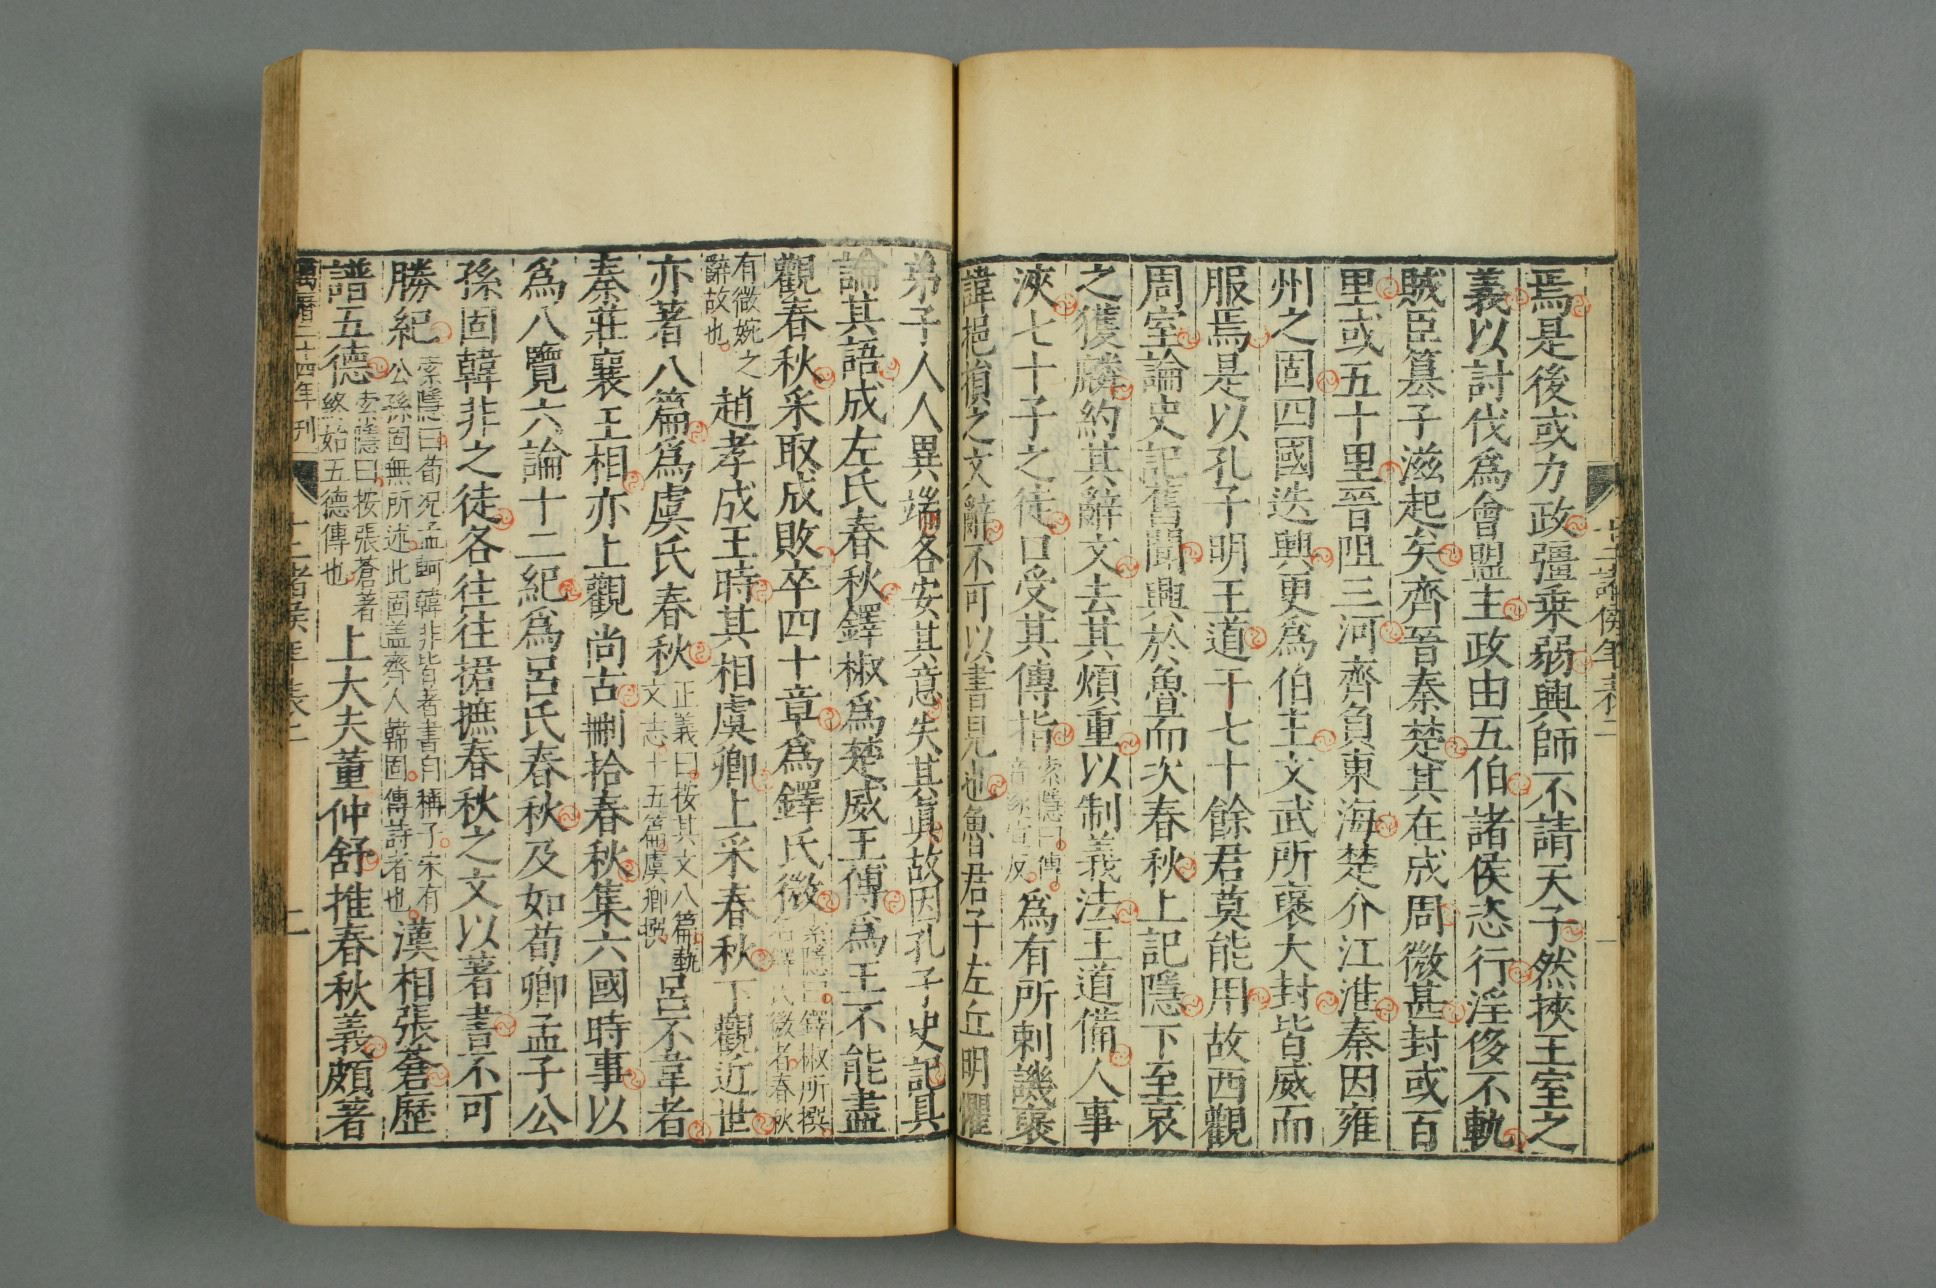 十二諸侯年表二
一
焉是後或力政彊乗弱興師不請天子然挾王室之
義以討伐爲會盟主政由五伯諸侯恣行淫侈不軌
賊臣篡子滋起矣齊晉秦楚其在成周微甚封或百
里或五十里晉阻三河齊負東海楚介江淮秦因雍
州之固四國迭興更爲伯主文武所褒大封皆威而
服焉是以孔子明王道干七十餘君莫能用故西觀
周室論史記舊聞興於魯而次春秋上記隱下至哀
之獲麟約其辭文去其煩重以制義法王道備人事
浹七十子之徒口受其傳指索隱曰傳音逐宣反爲有所刺譏褒
諱挹損之文辭不可以書見也魯君子左丘明懼
弟子人人異端各安其意失其眞故因孔子史記具
論其語成左氏春秋鐸椒爲楚威王傳爲王不能盡
觀春秋采取成敗卒四十章爲鐸氏微索隱曰鐸椒所撰名鐸氏微者春秋
有微婉之辭故也趙孝成王時其相虞卿上采春秋下觀近世
亦著八篇爲虞氏春秋正義曰按其文八篇藝文志十五篇虞卿撰呂不韋者
秦莊襄王相亦上觀尚古刪拾春秋集六國時事以
爲八覽六論十二紀爲呂氏春秋及如荀卿孟子公
孫固韓非之徒各往往捃摭春秋之文以著書不可
勝紀索隱曰荀況孟軻韓非皆著書自稱子宋有公孫固無所述此固盖齊人韓固傳詩者也漢相張蒼歷
譜五德索隱曰按張蒼著終始五德傳也上大夫董仲舒推春秋義頗著
萬曆二十四年刊
十二諸侯年表二
二